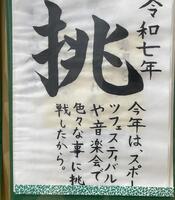 令和七年
挑
今年は、スポー
ツフェスティバル
や音楽会で
色々な事に挑
戦したから。